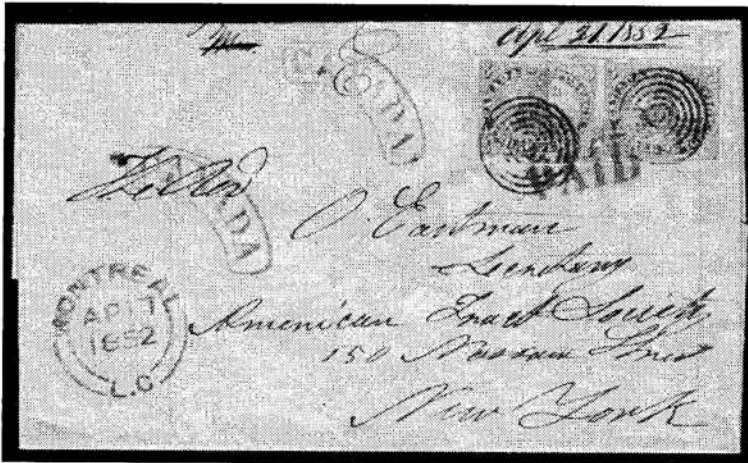 Apl 21. 1852
CANADA
PAID
CANADA
O. Eastman
Secretary
American Tract Society
150 Nassau Street
New York
MONTREAL
AP 17
1852
L.C